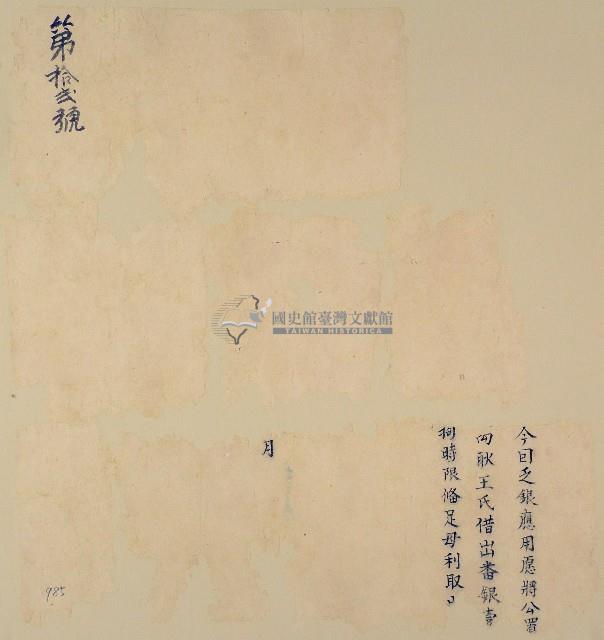 今因乏銀應用愿將公置
向耿王氏借出番銀壹
何時限俻足母利取
月
第拾弍號
985
國史館臺灣文獻館
TAIWAN HISTORICA